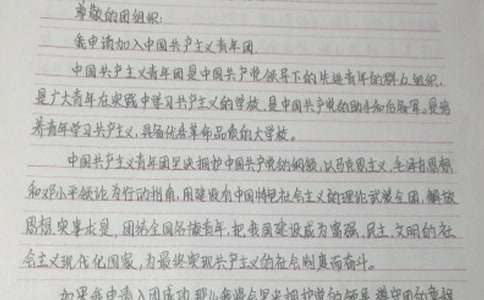 尊敬的团组织:
我申请加入中国共产主义青年团.
中国共产主义青年团是中国共产党领导下的先进青年的群众组织,
是广大青年在实践中学习共产主义的学校,是中国共产党的助手和后备军.是培
养青年学习共产主义,具备优良革命品质的大学校。
中国共产主义青年团坚决拥护中国共产党的纲领,以马克思主义,毛泽东思想
和邓小平理论为行动指南,用建设有中国特色社会主义的理论武装全团,解放
思想,实事求是,团结全国各族青年,把我国建设成为富强,民主,文明的社
会主义现代化国家,为最终实现共产主义的社会制度而奋斗。
如果我申请入团成功,那么我将会坚决拥护党的领导,遵守团的章程